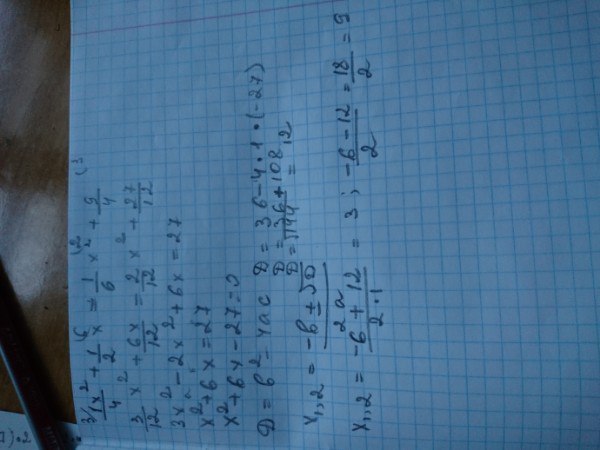 ³/ 1x²/4 + 1/2 ⁽⁶ x = 1/6 ⁽² x² + 9/4 ⁽³
3/12 x² + 6x/12 = 2/12 x² + 27/12
3x² - 2x² + 6x = 27
x² + 6x = 27
x² + 6x - 27 = 0
D = b² - 4ac D = 36 - 4 · 1 · (-27)
D = 36 + 108
D = √144 = 12
x₁,₂ = -b ± √D / 2a
x₁,₂ = -6 + 12 / 2 · 1 = 3 ; -6 - 12 / 2 = 18 / 2 = 9